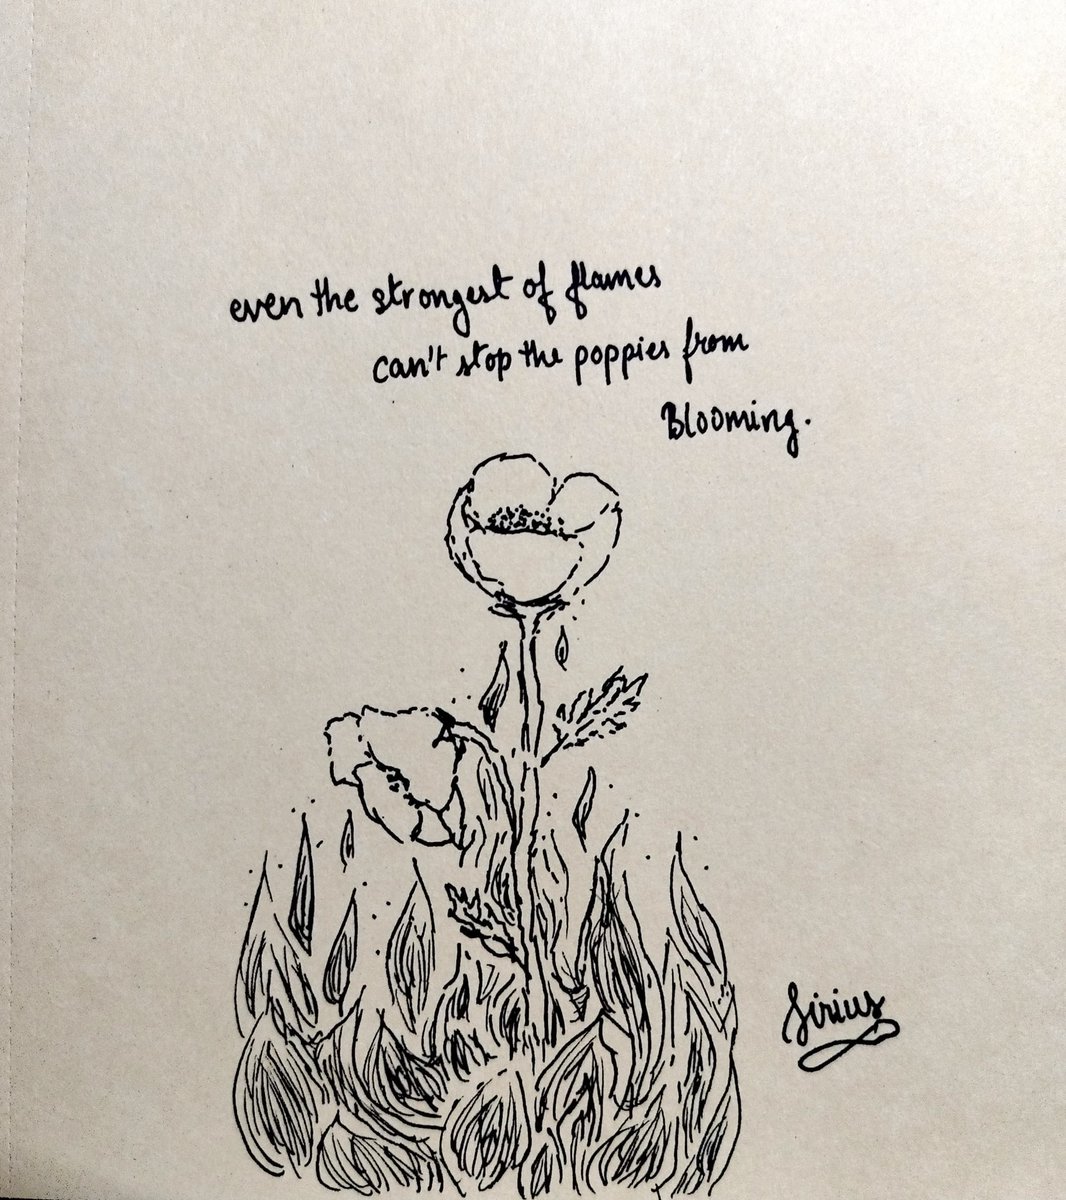 even the strongest of flames
can't stop the poppies from
Blooming.
Sirius